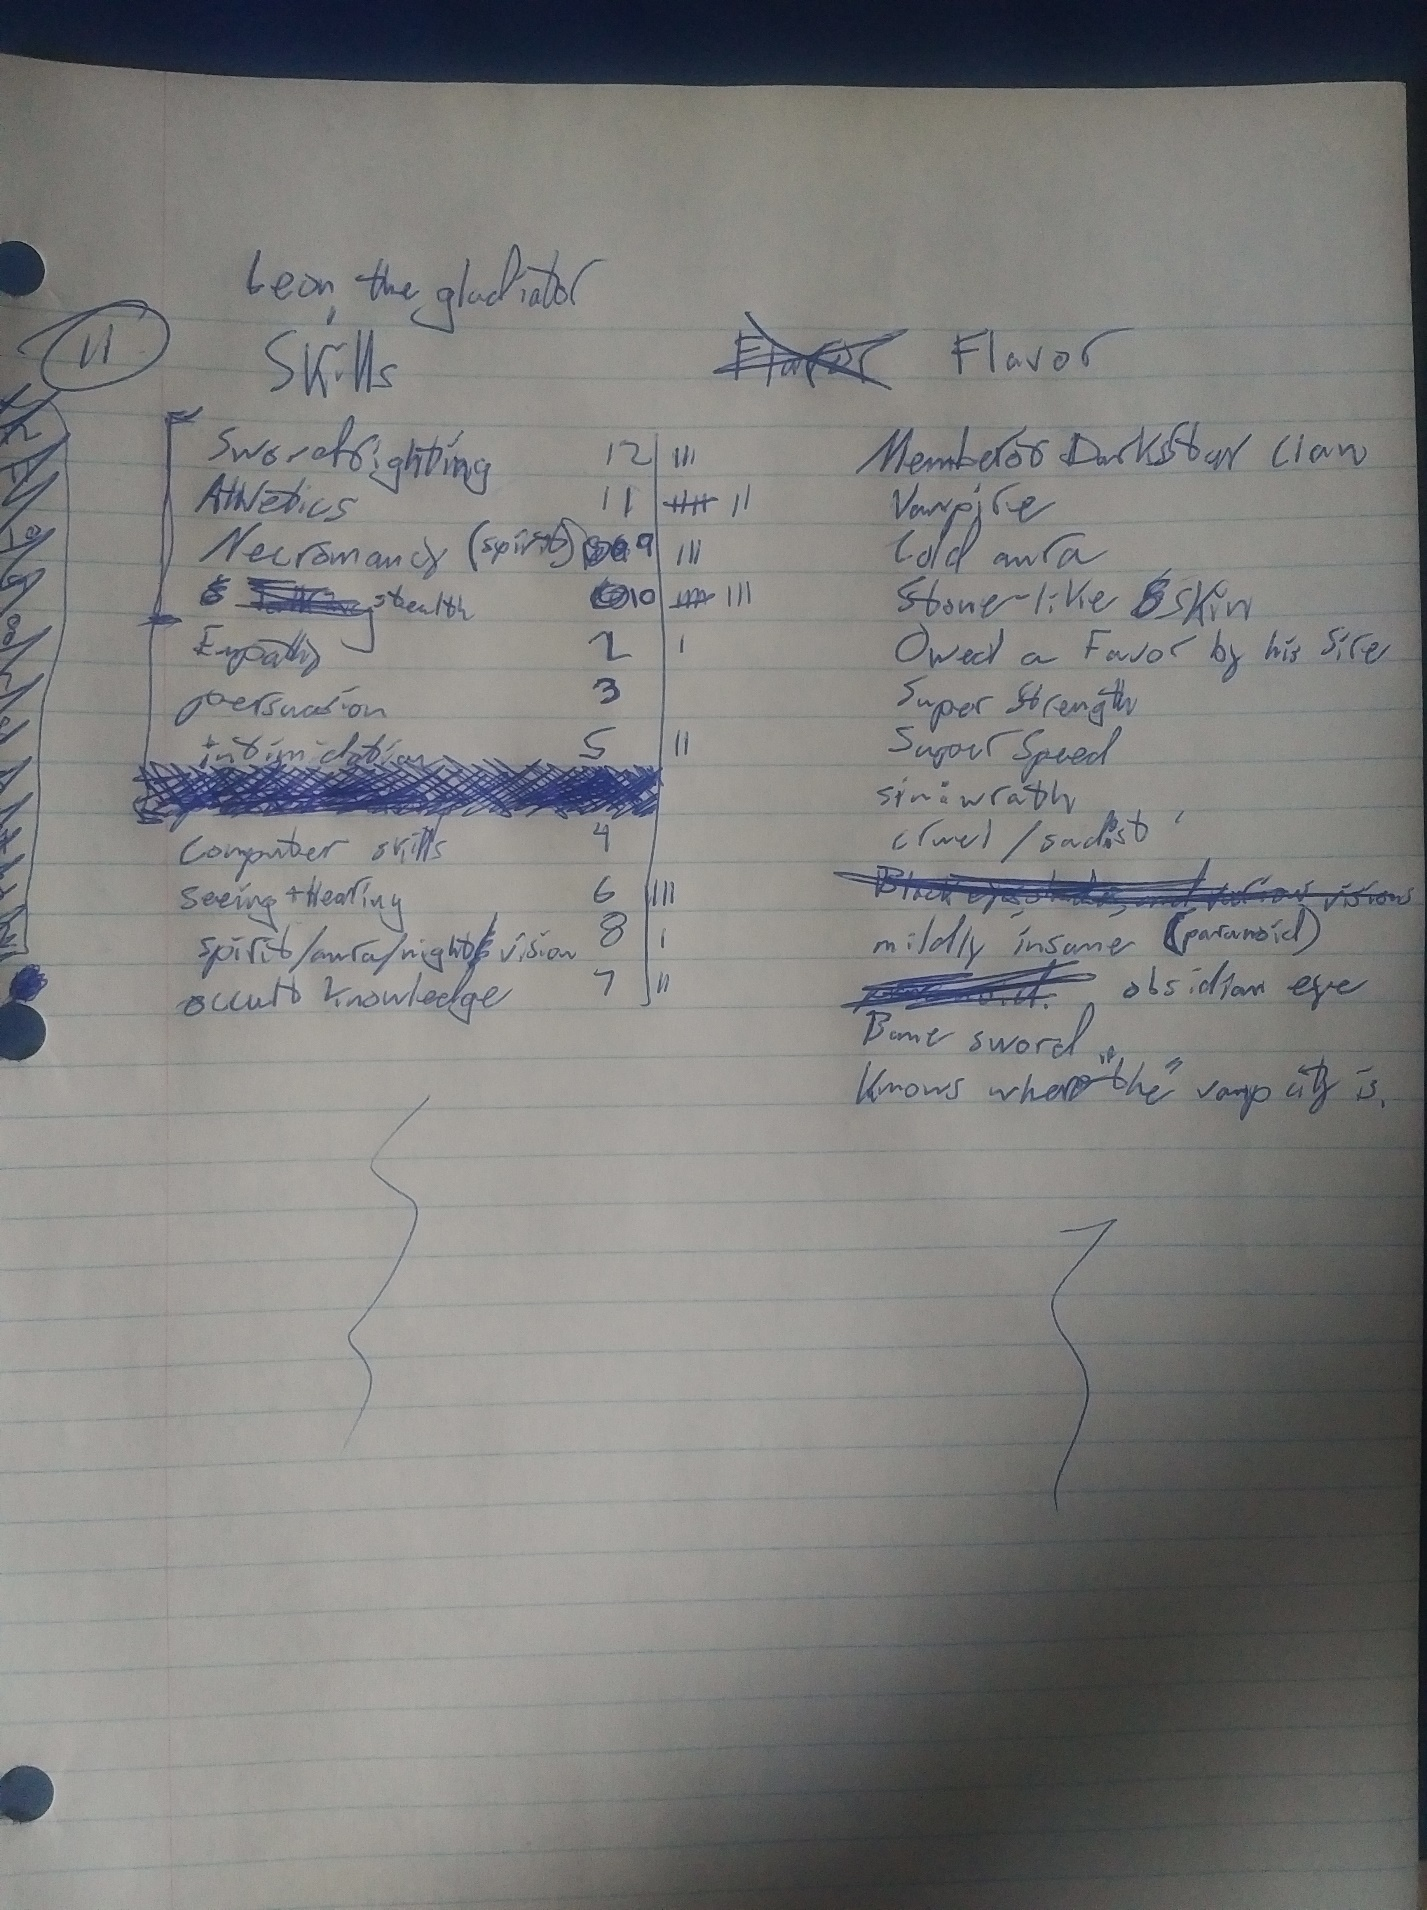 Leon, the gladiator
11
Skills
Flavor Flavor
Swordfighting 12 III
Athletics 11 IIIII II
Necromancy (spirit) 9 III
stealth 10 IIIII III
Empathy 2 I
persuasion 3
intimidation 5 II
computer skills 4
seeing + Hearing 6 III
spirit/aura/night vision 8 I
occult knowledge 7 II
Member of Darkstar Clan
Vampire
Cold aura
Stone-like skin
Owed a Favor by his Sire
Super Strength
Super Speed
sin: wrath
cruel / sadist
visions
mildly insane (paranoid)
obsidian eye
Bone sword
Knows where "the" vamp city is.